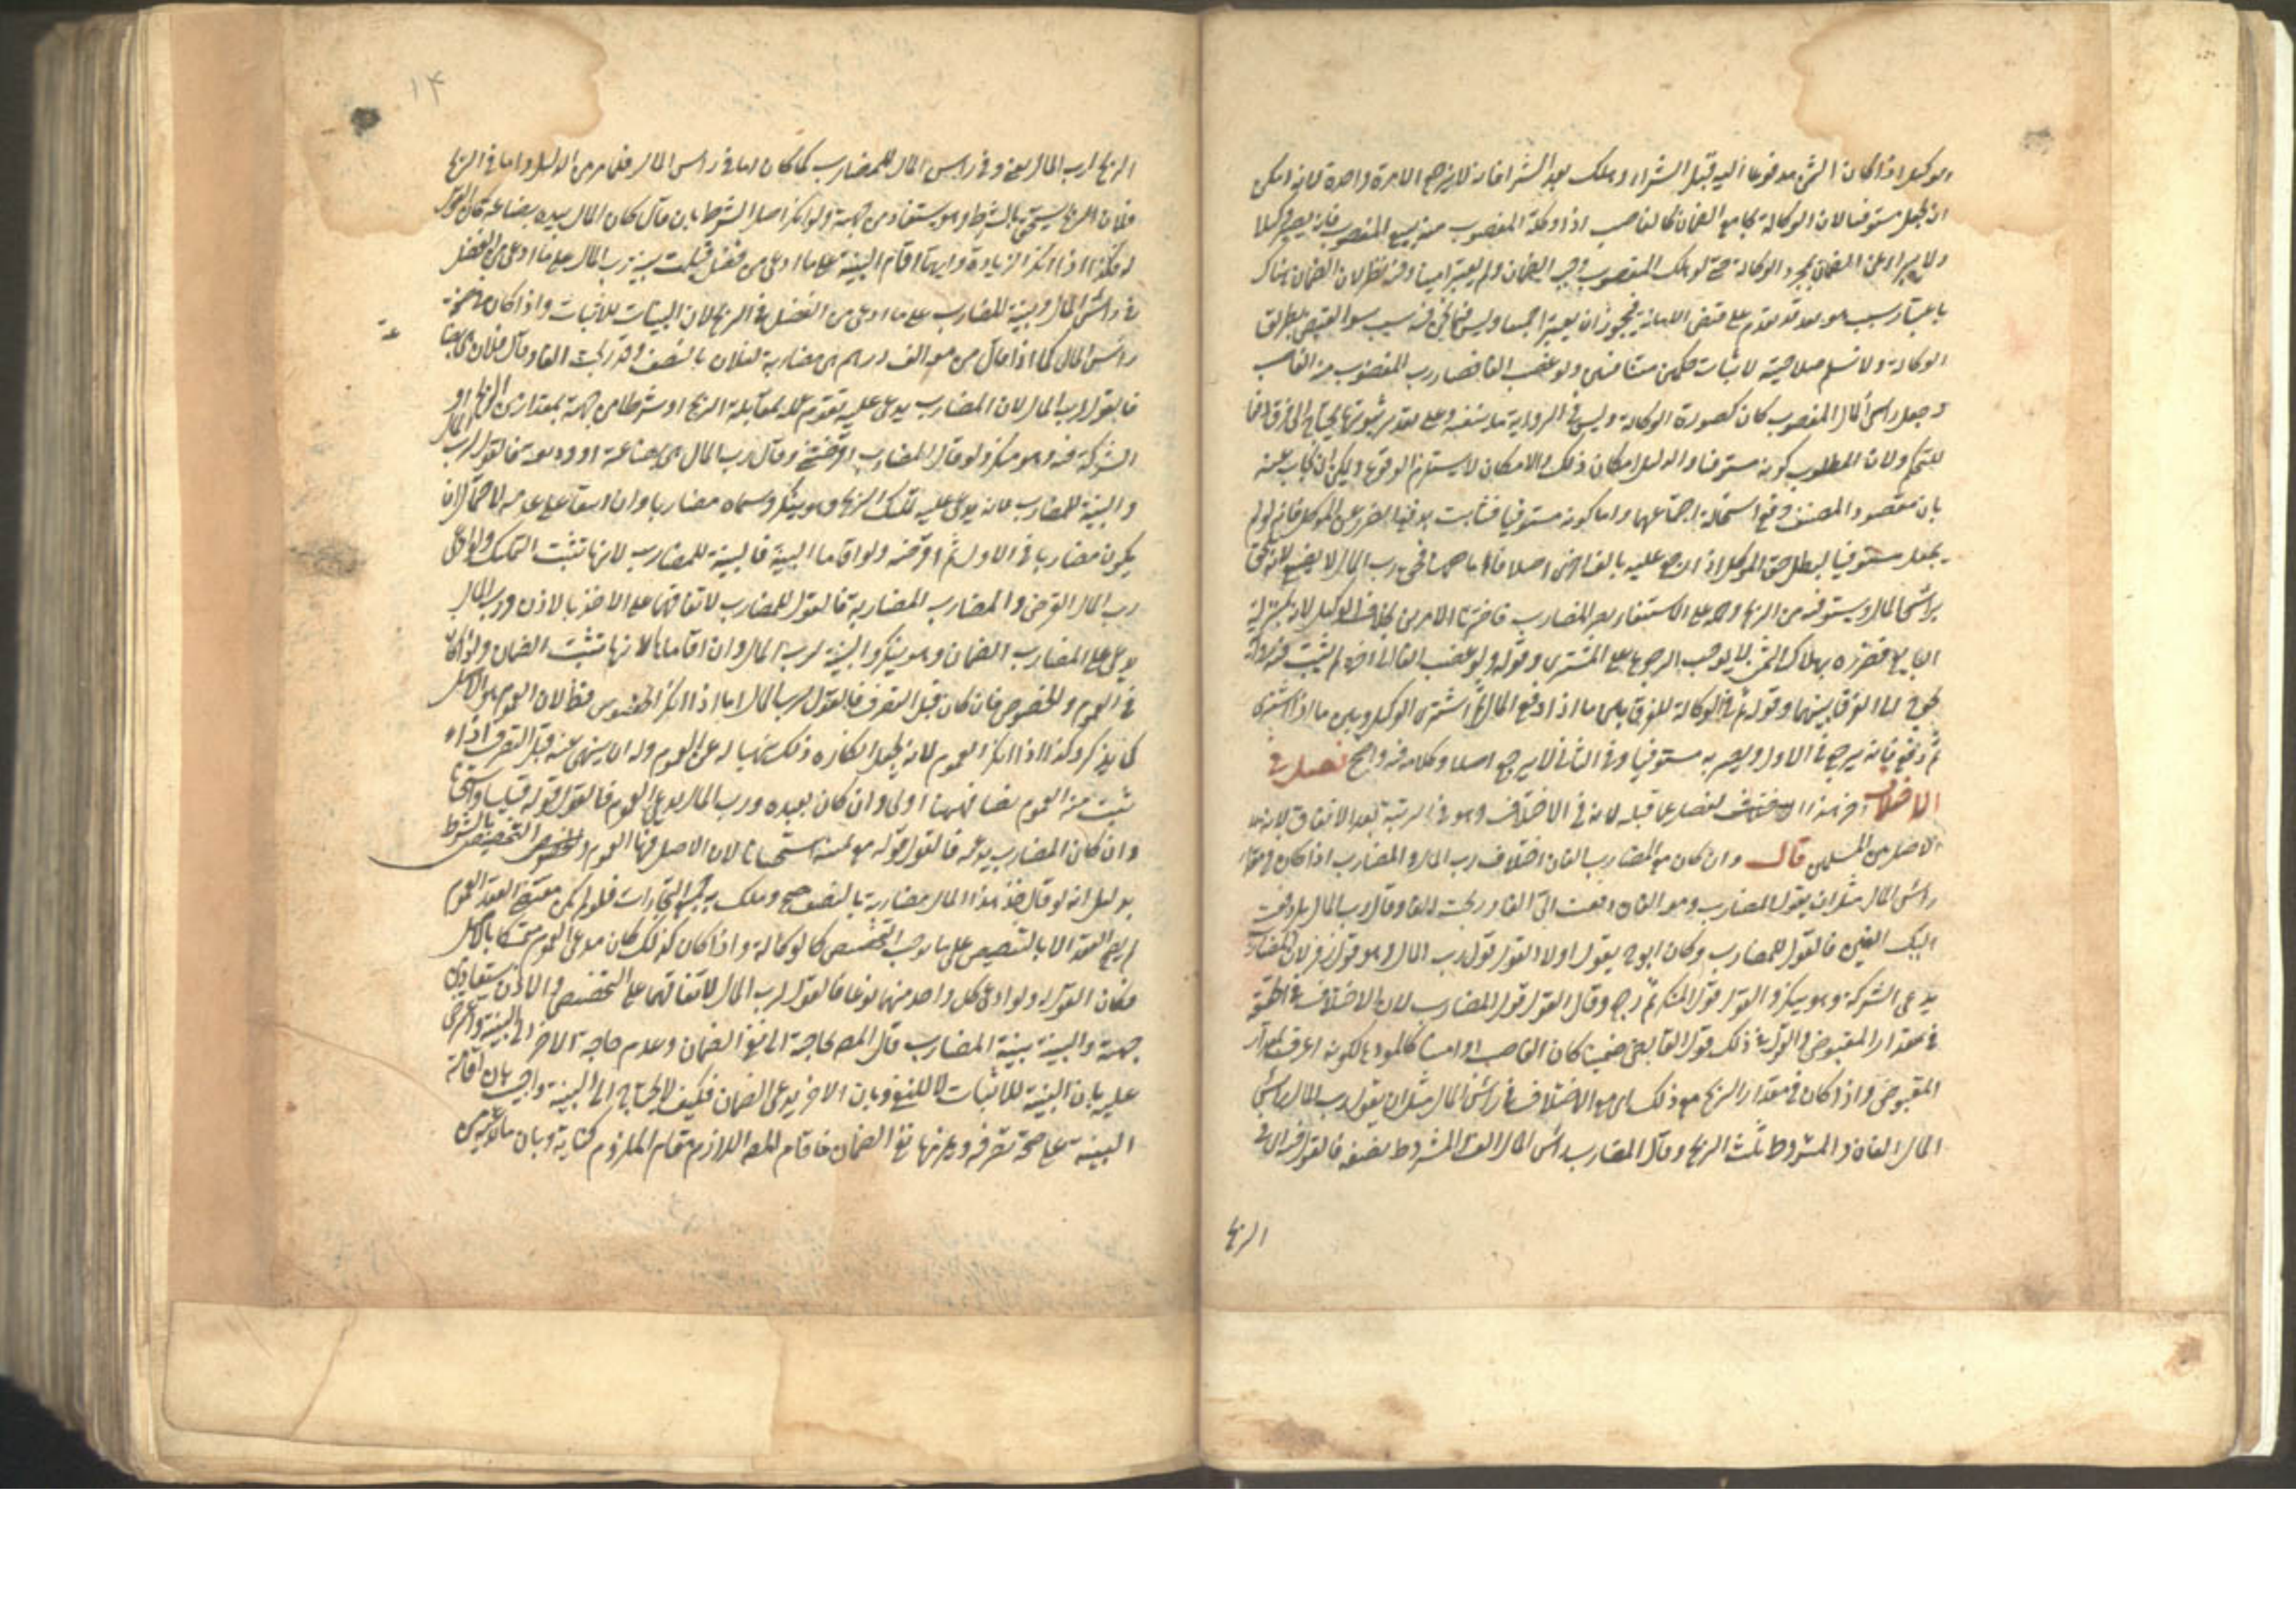 الوكيل اذا كان الثمن مدفوعا اليه قبل الشراء وهلك بعد الشرا فانه لا يرجع الا مرة واحدة لانه امكن
ان يجعل مستوفيا لان الوكالة تجامع الضمان كالغاصب اذا وكله المغصوب منه ببيع المغصوب فانه يصير وكيلا
ولا يبرأ عن الضمان بمجرد الوكالة حتى لو هلك المغصوب وجب الضمان ولم يعتبر امينا وفيه نظر لان الضمان هناك
باعتبار سبب هو تعد قد تقدم على قبض الامانة فيجوز ان يعتبرا جميعا وليس فيما نحن فيه سبب سوا القبض بطريق
الوكالة ولا نسلم صلاحيته لاثبات حكمين متنافيين ولو غصب الفا فضارب المغصوب منه الغاصب
وجعل راس المال المغصوب كان كصورة الوكالة وليس في الرواية ما ينفيه وعلى تقدير ثبوتها يحتاج الى فرق
للتحكم ولان المطلوب كونه مستوفيا والدليل امكان ذلك والامكان لا يستلزم الوقوع ويمكن ان يجاب عنه
بان مقصود المصنف دفع استحالة اجتماعهما واما كونه مستوفيا فثابت بدفع الضرر عن الموكل فانه لو لم
يجعل مستوفيا لبطل حق الموكل اذا رجع عليه بالف اخرى اصلا فاما ههنا فحق رب المال لا يضيع
براس المال ويستوفيه من الربح وحمله على الاستيفاء يضر المضارب فاخترنا الامرين بخلاف الوكيل لانه بمنزلة
البايع فضرره بهلاك الثمن لا يوجب الرجوع على المشتري وقوله ولو غصب الفا الى اخره لم يثبت فيه رواية
تحوج الى الفرق بينهما وقوله ثم في الوكالة للفرق بين ما اذا دفع المال ثم اشترى الوكيل وبين ما اذا اشترى
ثم دفع فانه يرجع في الاول ويصير به مستوفيا وفي الثاني لا يرجع اصلا وكلامه فيه واضح فصل في
الاختلاف اخر هذا الاختلاف لفصل عما قبله لانه في الاختلاف وهو في الرتبة بعد الاتفاق لانه هو
الاصل بين المسلمين قال وان كان مع المضارب الفان اختلاف رب المال والمضارب اذا كان في مقدار
راس المال مثل ان يقول المضارب ومعه الفان دفعت الي الفا وربحت الفا وقال رب المال بل دفعت
اليك الفين فالقول للمضارب وكان ابو ح يقول اولا القول قول رب المال وهو قول زفر لان المضارب
يدعي الشركة وهو ينكر والقول قول المنكر ثم رجع وقال القول قول المضارب لان الاختلاف في الحقيقة
في مقدار المقبوض والقول في ذلك قول القابض ضمينا كان كالغاصب او امينا كالمودع لكونه اعرف بمقدار
المقبوض واذا كان في مقدار الربح مع ذلك اي مع الاختلاف في راس المال مثل ان يقول رب المال راس
المال الفان والمشروط ثلث الربح وقال المضارب راس المال الف والمشروط نصفه فالقول في
الربح
١٤
الربح لرب المال يعني وفي راس المال للمضارب كما كان اما في راس المال فلما مر من الدليل واما في الربح
فلان الربح يستحق بالشرط وهو يستفاد من جهته ولو انكر اصل الشرط بان قال كان المال بيده بضاعة كان القول
له فكذا اذا انكر الزيادة وايهما اقام البينة على ما ادعى من فضل قبلت بينة رب المال على ما ادعى من الفضل
في راس المال وبينة المضارب على ما ادعى من الفضل في الربح لان البينات للاثبات واذا كان
راس المال كما اذا قال من معه الف درهم هي مضاربة لفلان بالنصف وقد ربحت الفا وقال فلان هي بضاعة
فالقول لرب المال لان المضارب يدعي عليه تقوم عمله بمقابلة الربح او شرطا من جهته بمقدار من الربح او
الشركة فيه وهو منكر ولو قال المضارب اقرضتني وقال رب المال هي بضاعة او وديعة فالقول لرب المال
والبينة للمضارب لانه يدعي عليه تملك الربح وهو ينكر وسماه مضاربا وان اتفقا على عدمه لاحتمال ان
يكون مضاربا في الاول ثم اقرضه ولو اقاما البينة فالبينة للمضارب لانها تثبت التملك ولو ادعى
رب المال القرض والمضارب المضاربة فالقول للمضارب لاتفاقهما على الاخذ بالاذن ورب المال
يدعي على المضارب الضمان وهو ينكر والبينة لرب المال وان اقاماها لانها تثبت الضمان ولو كان
في العموم والخصوص فان كان قبل التصرف فالقول لرب المال اما اذا انكر الخصوص فظ لان العموم هو الاصل
كما يذكر وكذا اذا انكر العموم لانه يجعل انكاره ذلك نهيا له عن العموم وله ان ينهى عنه قبل التصرف اذا
ثبت منه العموم نصا فههنا اولى وان كان بعده ورب المال يدعي العموم فالقول قوله قياسا واستحسانا
وان كان المضارب يدعيه فالقول قوله مع يمينه استحسانا لان الاصل فيها العموم والتخصيص بالشرط
بدليل انه لو قال خذ هذا المال مضاربة بالنصف صح وملك به جميع التجارات فلو لم يكن مقتضى العقد العموم
لم يصح العقد الا بالتنصيص على ما يوجب التخصيص كالوكالة واذا كان كذلك كان مدعي العموم متمسكا بالاصل
فكان القول له ولو ادعى كل واحد منهما نوعا فالقول لرب المال لاتفاقهما على التخصيص والاذن يستفاد من
جهته والبينة بينة المضارب قال المص لحاجته الى نفي الضمان وعدم حاجة الاخر الى البينة واعترض
عليه بان البينة للاثبات لا للنفي وبان الاخر يدعي الضمان فكيف لا يحتاج الى البينة واجيب بان اقامة
البينة على صحة تصرفه ويلزمها نفي الضمان فاقام المص اللازم مقام الملزوم كناية وبان ما يدعيه من